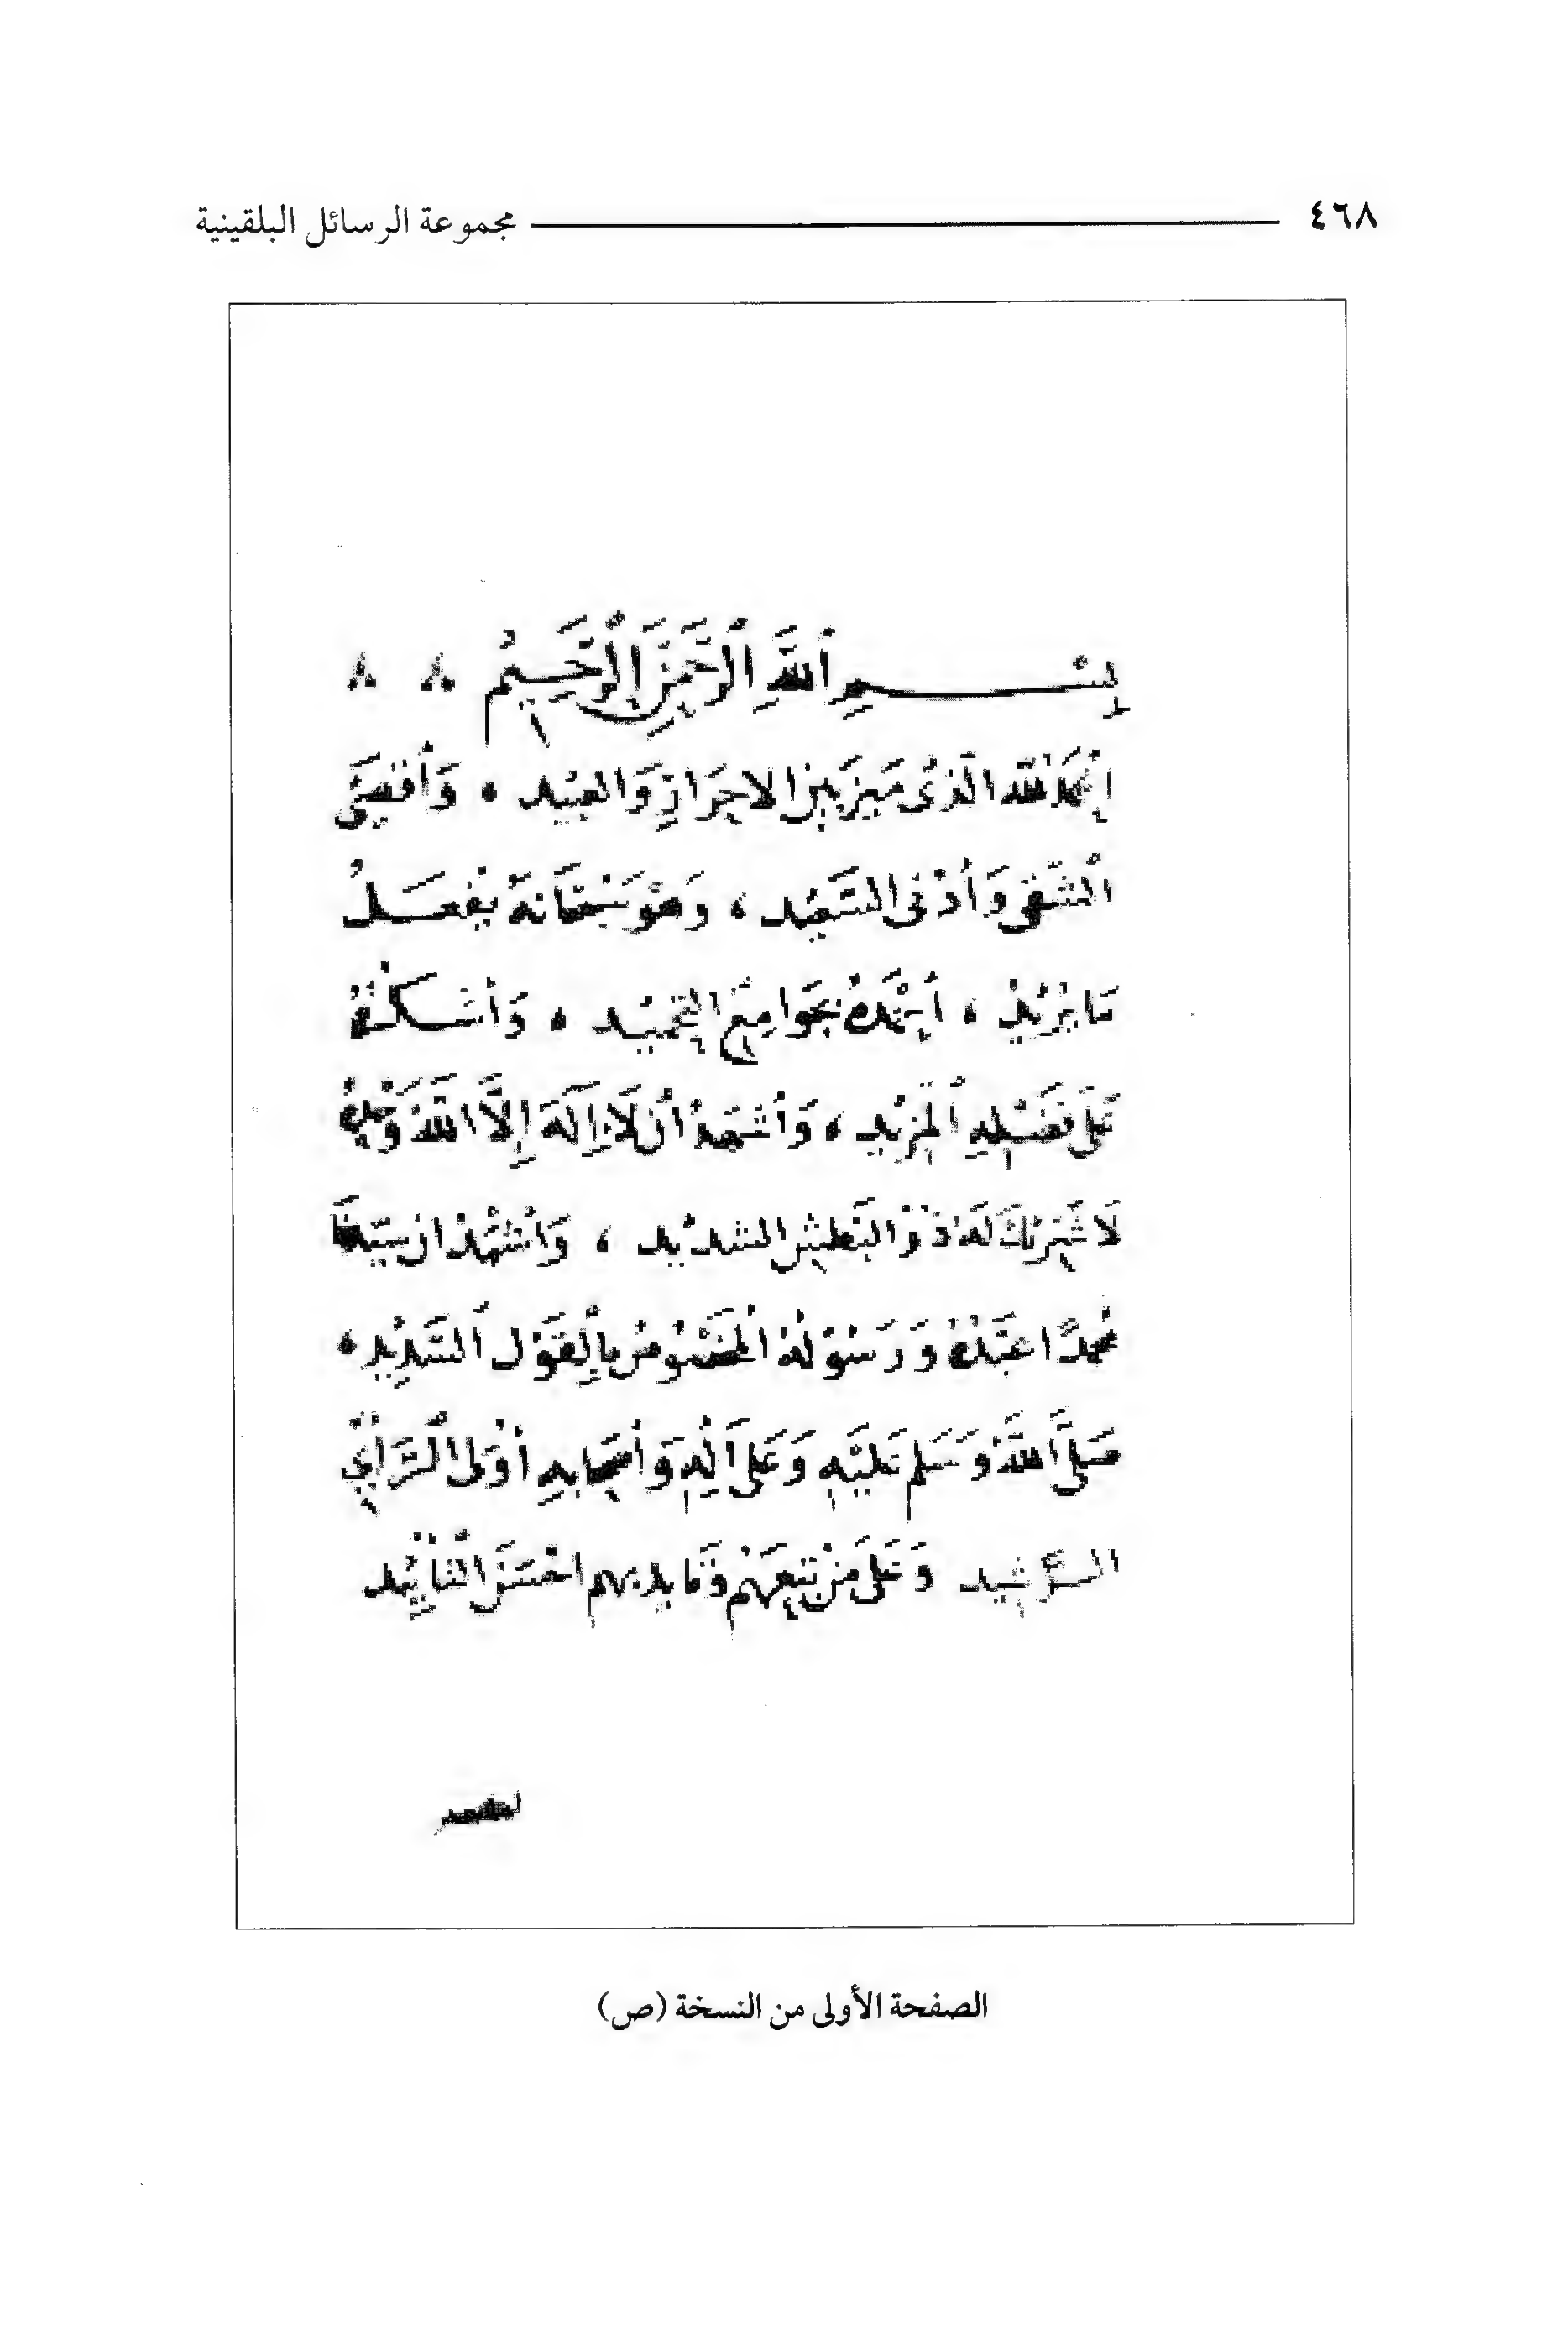 ٤٦٨ مجموعة الرسائل البلقينية
بِسْمِ اللَّهِ الرَّحْمَنِ الرَّحِيمِ
الحَمْدُ لله الَّذِى مَيَّز بين الاحْرَارِ وَالعبِيْد ، وَأَقْصَى
الشَّقي وَأَدْنى السَّعِيْد ، وَهُوَ سُبْحَانَهُ يَفْعَلُ
مَا يُرْيدُ ، أَحْمَدُهُ بجَوَامِعِ التحْمِيْد ، وَأشكُرُهُ
عَلى فَضْلِهِ المزيْد ، وَأشْهَدُ أن لَا إلَهَ إلَّا اللَّهُ وَحْدَهُ
لَا شَرِيْكَ لَهُ ذُوْ البَطْشِ الشديْد ، وَأشْهَدُ ان سَيّدنَا
مُحمدًا عَبْدُهُ وَرَسُوْلُهُ المخْصُوْصُ بِالْقَوْل السَّدِيْد ،
صَلَّى اللَّهُ وَسَلم عَلَيْه وَعَلى آلِهِ وَأصْحَابِهِ أوْلى الرَّأْيِ
الرَّشِيد وَعَلَى مَنْ تبِعَهُمْ احْسَنَ التأيِيْد
الصفحة الأولى من النسخة (ص)